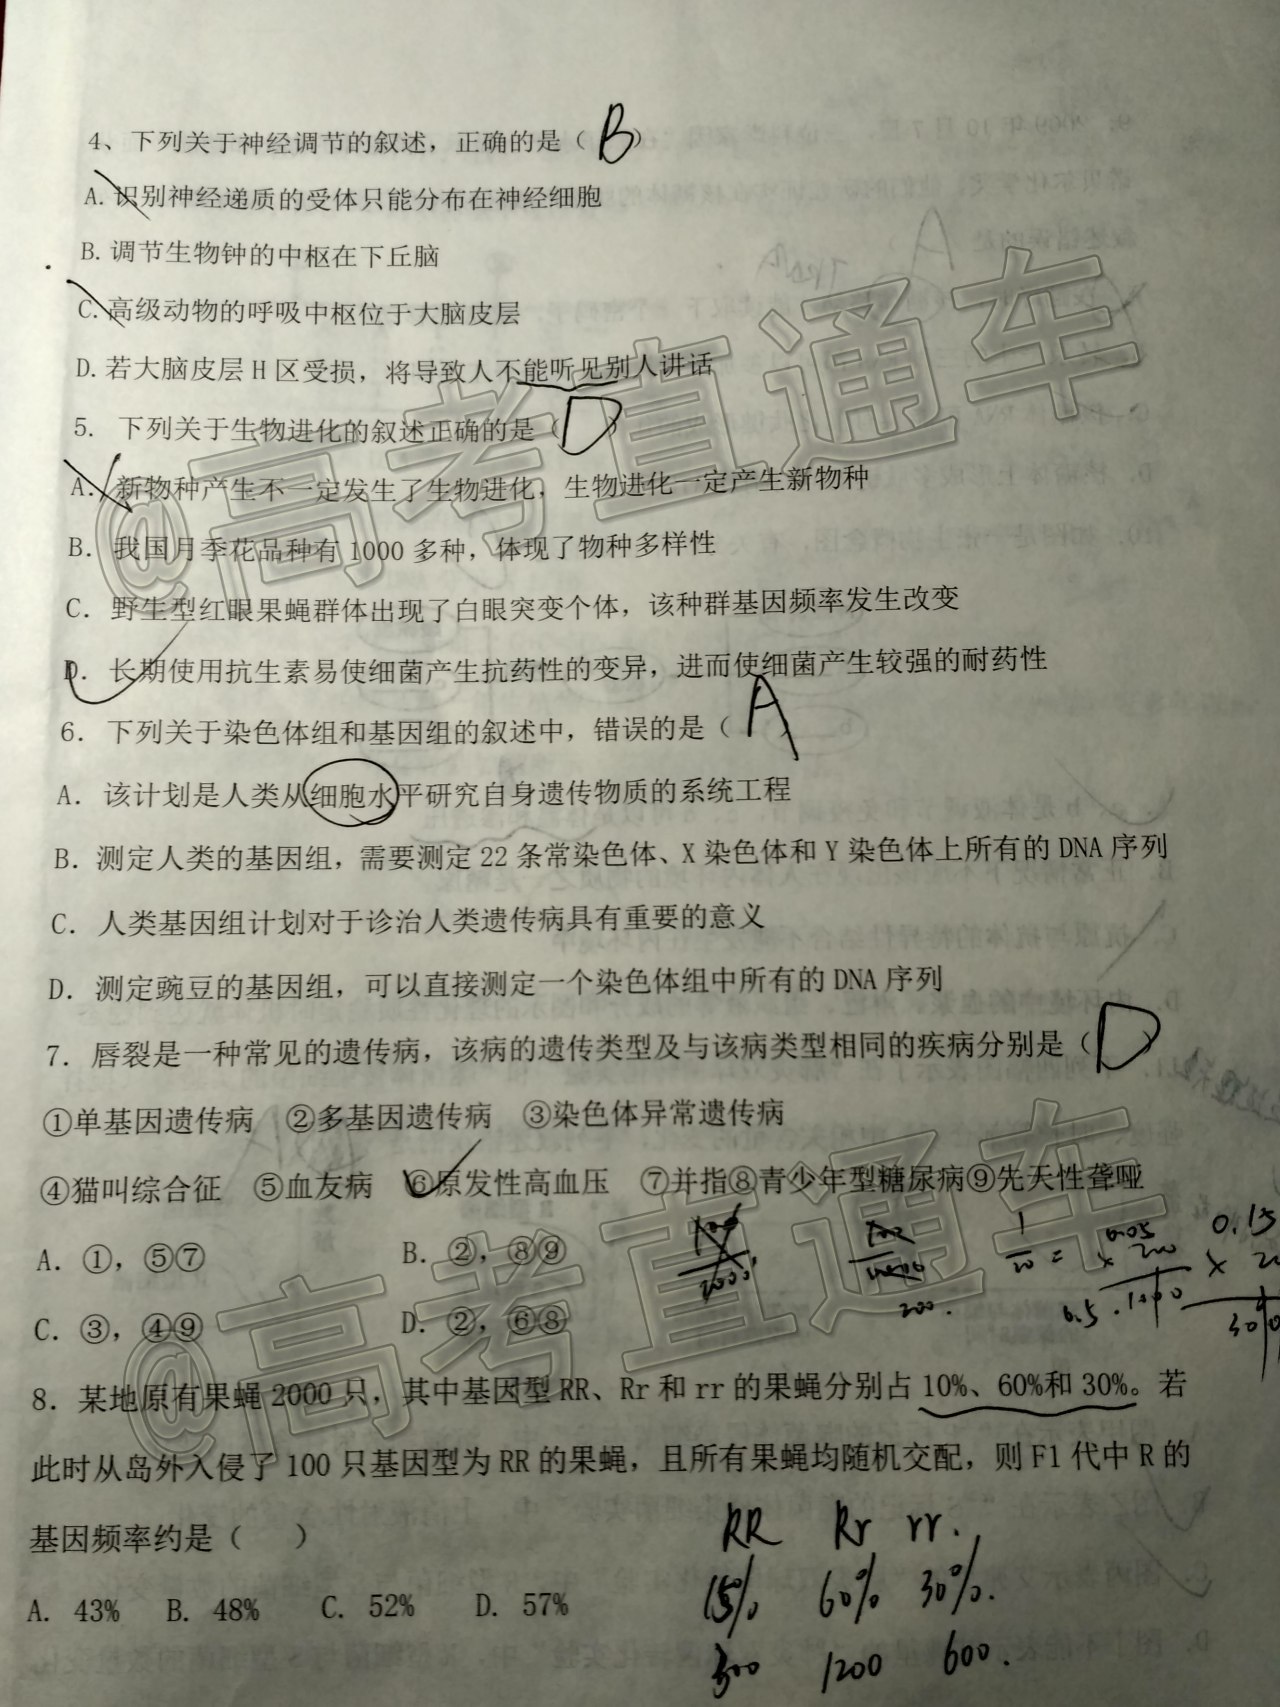 4、下列关于神经调节的叙述，正确的是（ B ）
A. 识别神经递质的受体只能分布在神经细胞
B. 调节生物钟的中枢在下丘脑
C. 高级动物的呼吸中枢位于大脑皮层
D. 若大脑皮层 H 区受损，将导致人不能听见别人讲话
5. 下列关于生物进化的叙述正确的是（ D ）
A. 新物种产生不一定发生了生物进化，生物进化一定产生新物种
B. 我国月季花品种有 1000 多种，体现了物种多样性
C. 野生型红眼果蝇群体出现了白眼突变个体，该种群基因频率发生改变
D. 长期使用抗生素易使细菌产生抗药性的变异，进而使细菌产生较强的耐药性
6. 下列关于染色体组和基因组的叙述中，错误的是（ A ）
A. 该计划是人类从细胞水平研究自身遗传物质的系统工程
B. 测定人类的基因组，需要测定 22 条常染色体、X 染色体和 Y 染色体上所有的 DNA 序列
C. 人类基因组计划对于诊治人类遗传病具有重要的意义
D. 测定豌豆的基因组，可以直接测定一个染色体组中所有的 DNA 序列
7. 唇裂是一种常见的遗传病，该病的遗传类型及与该病类型相同的疾病分别是（ D ）
①单基因遗传病 ②多基因遗传病 ③染色体异常遗传病
④猫叫综合征 ⑤血友病 ⑥原发性高血压 ⑦并指⑧青少年型糖尿病⑨先天性聋哑
A. ①，⑤⑦ B. ②，⑧⑨
C. ③，④⑨ D. ②，⑥⑧
8. 某地原有果蝇 2000 只，其中基因型 RR、Rr 和 rr 的果蝇分别占 10%、60%和 30%。若
此时从岛外入侵了 100 只基因型为 RR 的果蝇，且所有果蝇均随机交配，则 F1 代中 R 的
基因频率约是（ ）
RR Rr rr.
A. 43% B. 48% C. 52% D. 57%
15% 60% 30%.
300 1200 600.
@高考直通车
@高考直通车